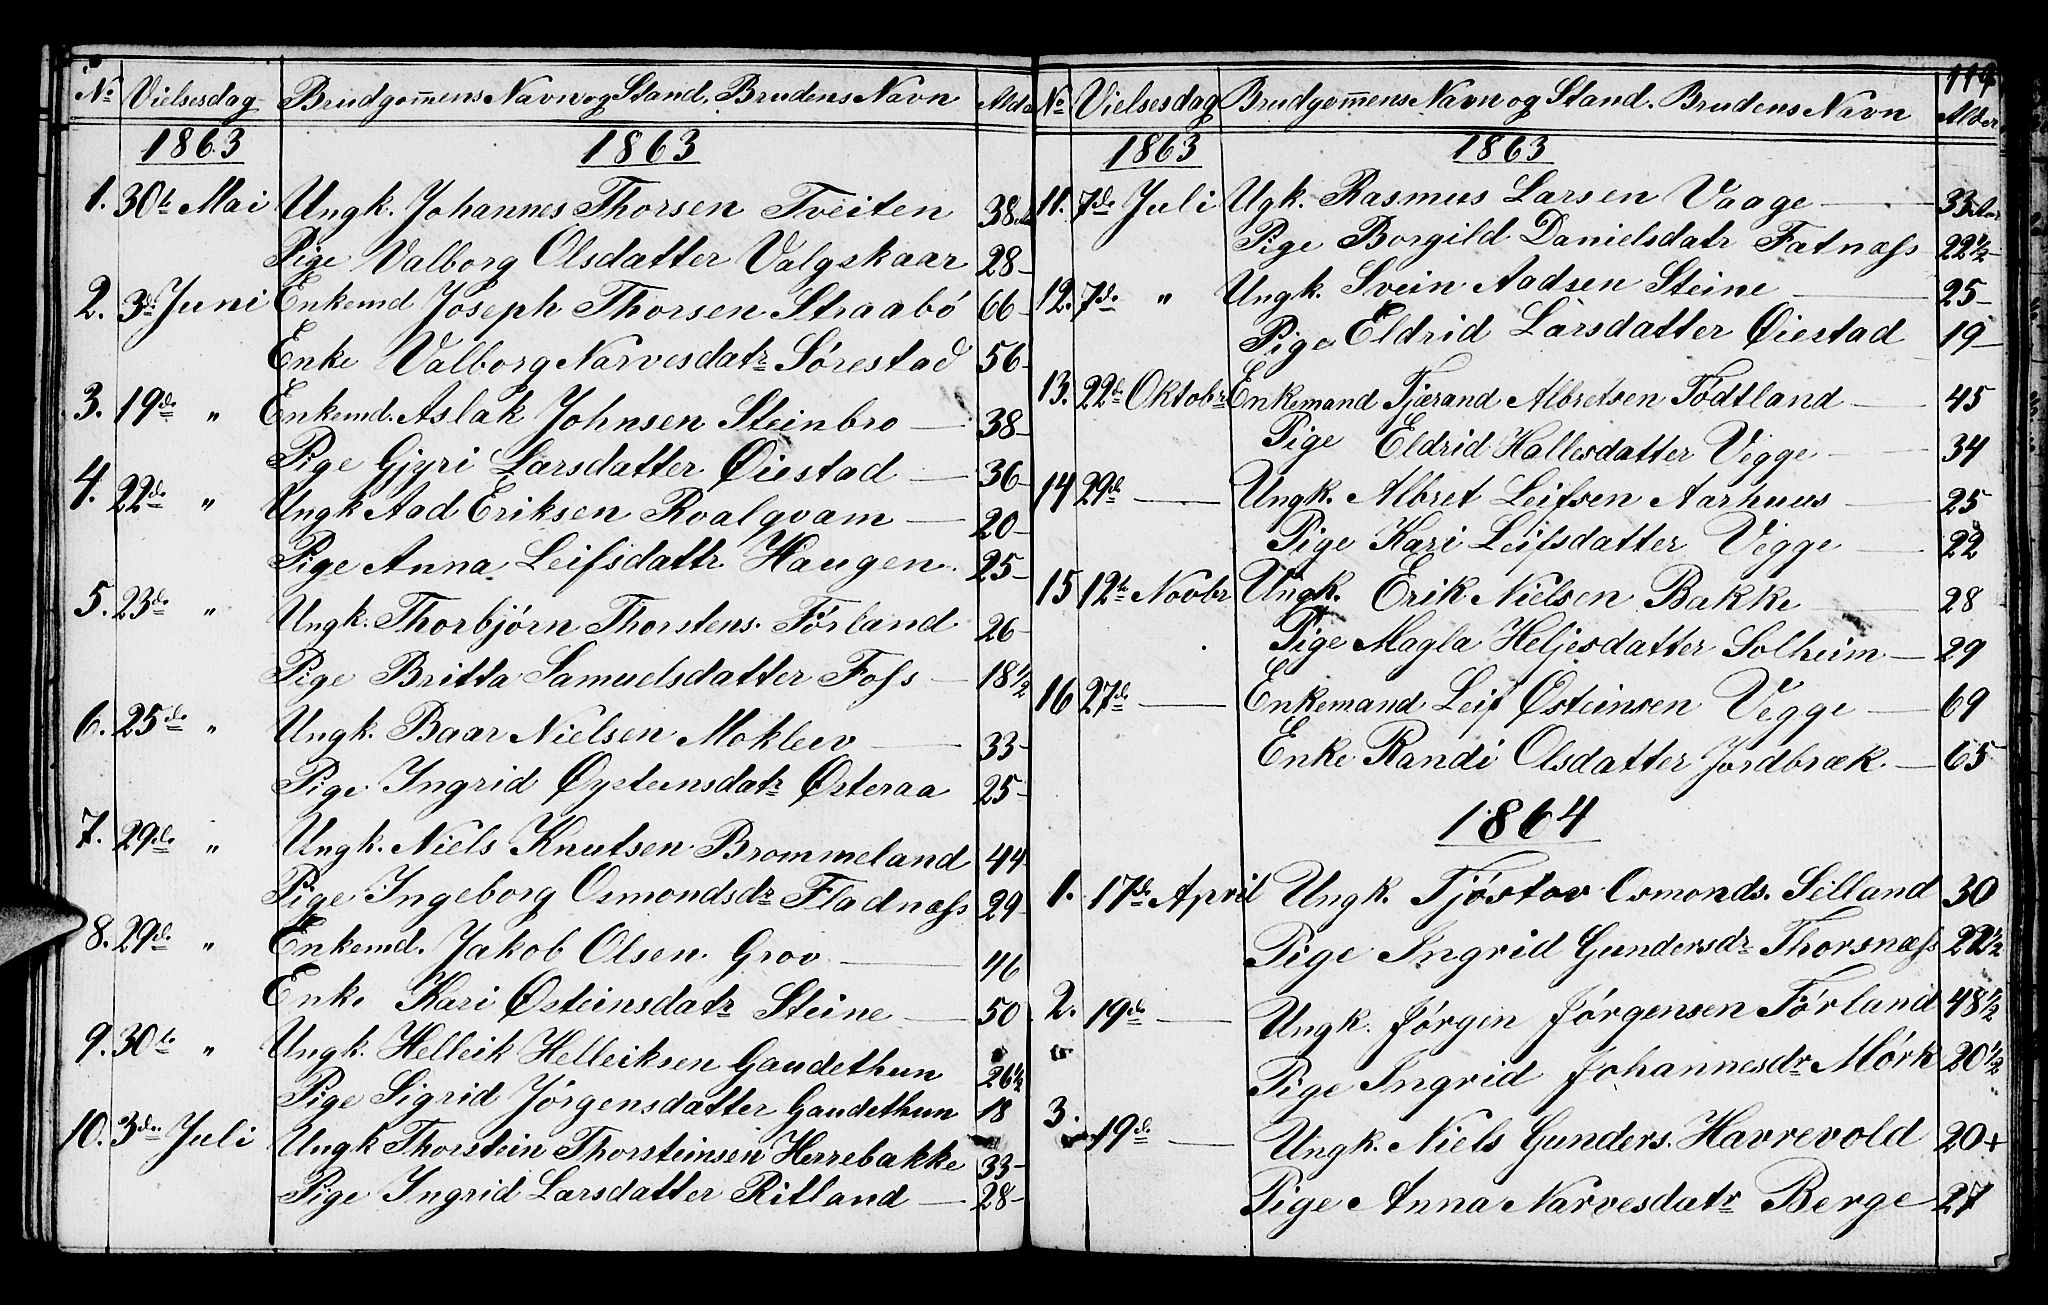 No Vielsesdag Brudgom̄ens Navn og Stand, Brudens Navn Alde
1863 1863
1. 30te Mai Ungk. Johannes Thorsen Tveiten 38
Pige Valborg Olsdatter Valgskaar 28-
2. 3de Juni Enkemd Joseph Thorsen Straabó 66-
Enke Valborg Narvesdatr Sórestad 56-
3. 19de " Enkemd. Aslak Johnsen Steinbro — 38-
Pige Gjyri Larsdatter Øiestad — 36-
4. 22de " Ungk Aad Eriksen Roalqvam — 20-
Pige Anna Leifsdattr Haugen. 25-
5. 23de " Ungk. Thorbjórn Thorstens. Fórland. 26-
Pige Britta Samuelsdatter Foss — 18 1/2
6. 25de " Ungk. Baar Nielsen Mokleiv — 33-
Pige Ingrid Øysteinsdatr Østeraa 25-
7. 29de " Ungk. Niels Knutsen Brommeland 44-
Pige Ingeborg Osmondsdr Fladnæss 29-
8. 29de " Enkemd. Jakob Olsen. Grov — 46
Enke Kari Østeinsdatr Steine — 50
9. 30te " Ungk. Helleik Helleiksen Gaudethun 26 1/2
Pige Sigrid Jørgensdatter Gaudethun 18
10. 3de Juli Ungk Thorstein Thorsteinsen Herrebakke 33-
Pige Ingrid Larsdatter Ritland — 28-
119
No Vielsesdag Brudgom̄ens Navn og Stand. Brudens Navn Alder
1863 1863
11. 7de Juli Ugk. Rasmus Larsen Vaage — 33 Aar
Pige Borgild Danielsdatr Fatnæss 22 1/2-
12. 7de " Ungk. Svein Aadsen Steine — 25-
Pige Eldrid Larsdatter Øiestad 19-
13. 22de Oktobr Enkemand Tjærand Albretsen Tódtland — 45
Pige Eldrid Hallesdatter Vegge — 34
14 29de — Ungk. Albret Leifsen Aarhuus — 25
Pige Kari Leifsdatter Vegge — 22
15 12te Novbr Ungk. Erik Nielsen Bakke — 28
Pige Magla Heljesdatter Solheim — 29
16 27de — Enkemand Leif Østeinsen Vegge — 69
Enke Randi Olsdatter Jordbræk. — 65
1864
1. 17de April Ungk. Tjóstov Osmonds. Selland 30
Pige Ingrid Gundersdr Thorsnæss 22 1/2
2. 19de — Ungk. Jórgen Jórgensen Fórland 48 1/2
Pige Ingrid Johannesdr Mórk 20 1/2
3. 19de — Ungk. Niels Gunders. Havrevold 20+
Pige Anna Narvesdatr Berge 27